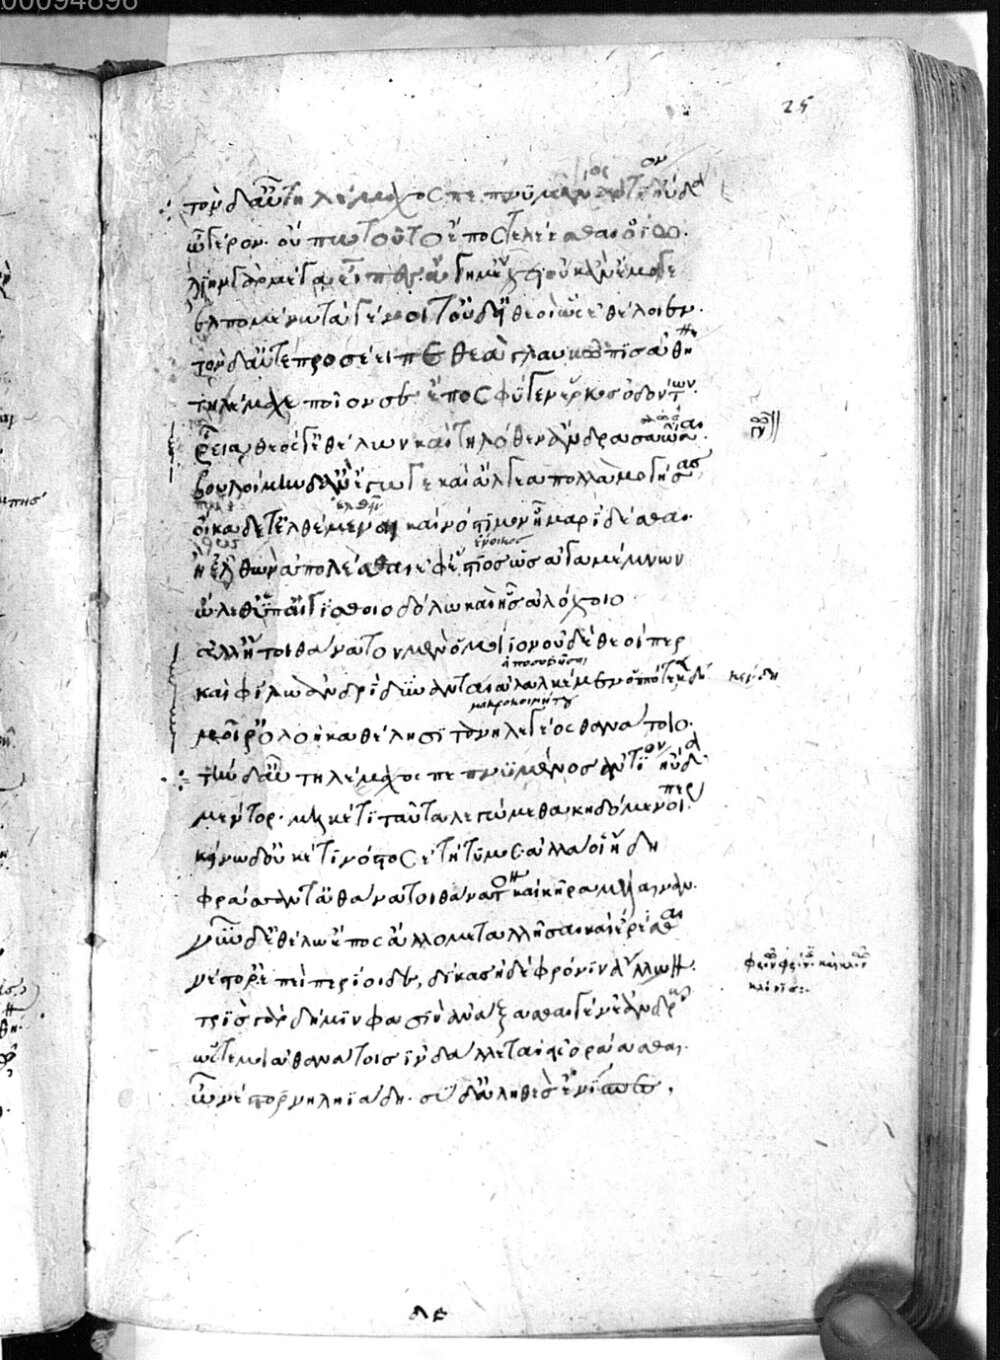 00094896
25
τὸν δ' αὖ τηλέμαχος πεπνυμένος ἀντίον ηὔδα
ὦ γέρον. οὔπω τοῦτο ἔπος τελέεσθαι ὀΐω.
λίην γὰρ μέγα εἶπες. ἄγη μ' ἔχει. οὐκ ἂν ἔμοιγε
ἐλπομένω τὰ γένοιτ' οὐδ' εἰ θεοὶ ὣς ἐθέλοιεν.
τὸν δ' αὖτε προσέειπε θεὰ γλαυκῶπις ἀθήνη
τηλέμαχε ποῖον σε ἔπος φύγεν ἕρκος ὀδόντων.
ῥεῖα θεός γ' ἐθέλων καὶ τηλόθεν ἄνδρα σαώσαι.
βουλοίμην δ' ἂν ἔγωγε καὶ ἄλγεα πολλὰ μογήσας
οἴκαδέ τ' ἐλθέμεναι καὶ νόστιμον ἦμαρ ἰδέσθαι.
ἢ ἐλθὼν ἀπολέσθαι ἐφέστιος ὡς ἀγαμέμνων
ὤλεθ' ὑπ' αἰγίσθοιο δόλω καὶ ἧς ἀλόχοιο
ἀλλ' ἤτοι θάνατον μὲν ὁμοίϊον οὐδὲ θεοί περ
καὶ φίλω ἀνδρὶ δύνανται ἀλαλκέμεν ὁππότε κεν δὴ
μοῖρ' ὀλοὴ καθέλησι τανηλεγέος θανάτοιο.
τὴν δ' αὖ τηλέμαχος πεπνυμένος ἀντίον ηὔδα
μέντορ. μηκέτι ταῦτα λεγώμεθα κηδόμενοί περ
κείνω δ' οὐκέτι νόστος ἐτήτυμος. ἀλλά οἱ ἤδη
φράσαντ' ἀθάνατοι θάνατον καὶ κῆρα μέλαιναν.
νῦν δ' ἐθέλω ἔπος ἄλλο μεταλλῆσαι καὶ ἐρέσθαι
νέστορ' ἐπεὶ περίοιδε, δίκας ἠδὲ φρόνιν ἄλλων.
τρὶς γὰρ δή μιν φασὶν ἀνάξασθαι γένε' ἀνδρῶν
ὥστε μοι ἀθάνατος ἰνδάλλεται εἰσοράασθαι.
ὦ νέστορ νηληϊάδη. σὺ δ' ἀληθὲς ἐνίσπες.